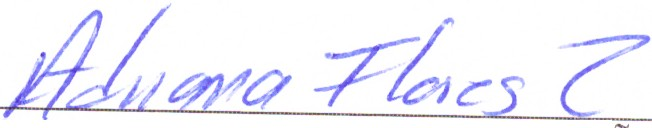 Adriana Flores Z